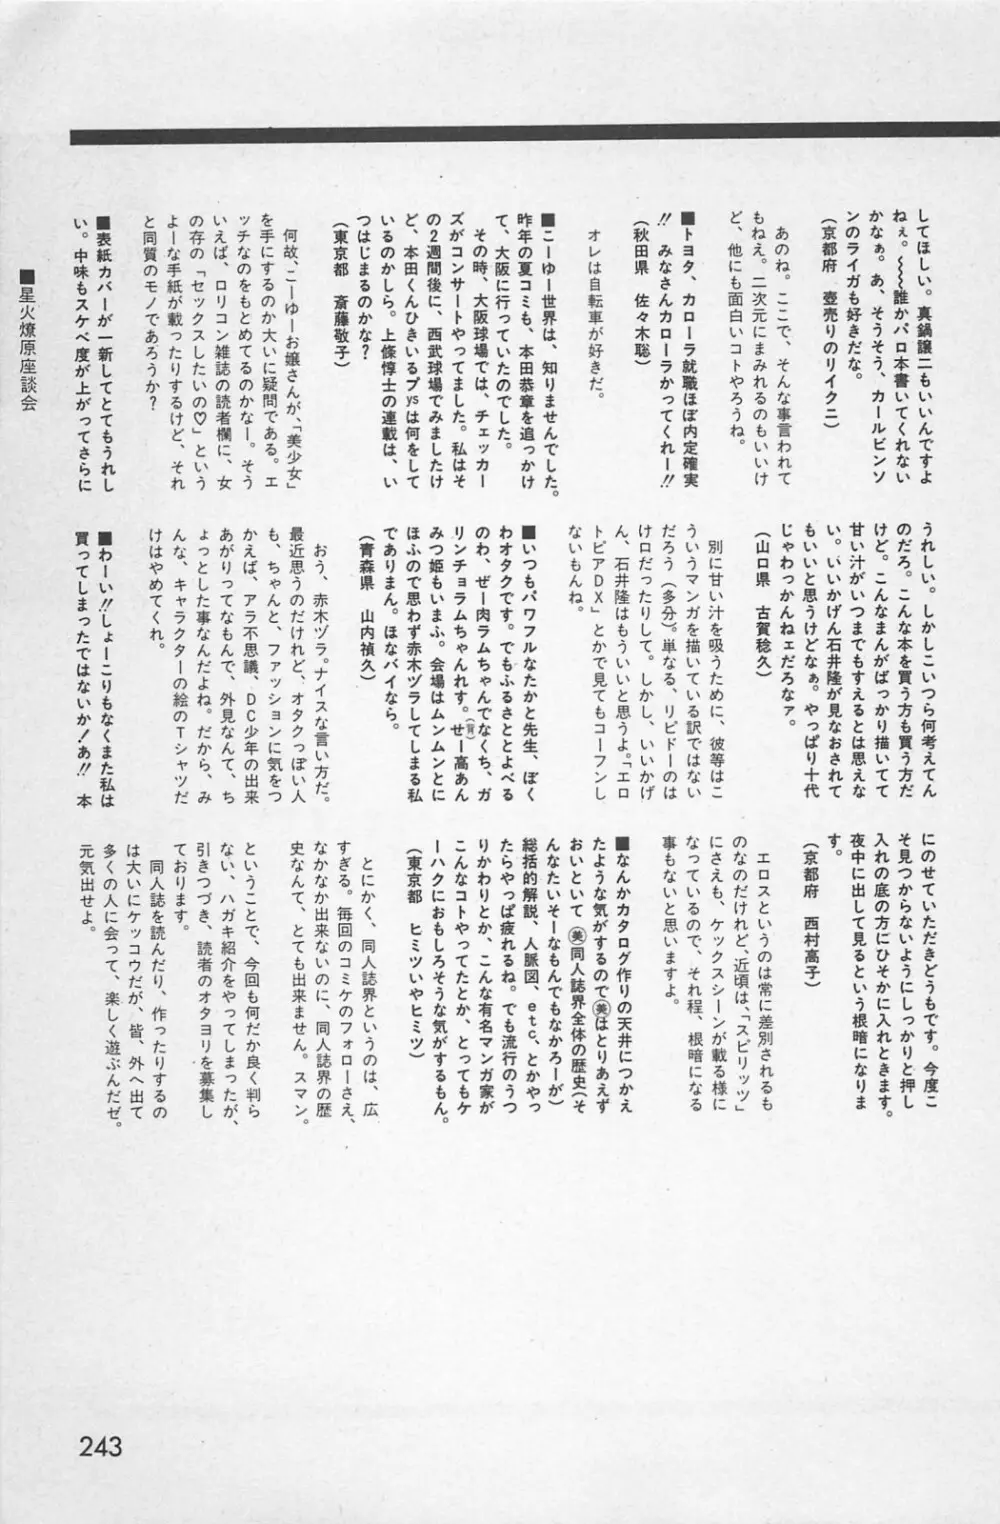 してほしい。真鍋譲二もいいんですよ
ねぇ。〜〜誰かパロ本書いてくれない
かなぁ。あ、そうそう、カールビンソ
ンのライガも好きだな。
（京都府　壺売りのリイクニ）
あのね。ここで、そんな事言われて
もねえ。二次元にまみれるのもいいけ
ど、他にも面白いコトやろうね。
■トヨタ、カローラ就職ほぼ内定確実
!!　みなさんカローラかってくれー!!
（秋田県　佐々木聡）
オレは自転車が好きだ。
■こーゆー世界は、知りませんでした。
昨年の夏コミも、本田恭章を追っかけ
て、大阪に行っていたのでした。
その時、大阪球場では、チェッカー
ズがコンサートやってました。私はそ
の2週間後に、西武球場でみましたけ
ど、本田くんひきいるプysは何をして
いるのかしら。上條惇士の連載は、い
つはじまるのかな？
（東京都　斎藤敬子）
何故、こーゆーお嬢さんが、「美少女」
を手にするのか大いに疑問である。エ
ッチなのをもとめてるのかなー。そう
いえば、ロリコン雑誌の読者欄に、女
の存の「セックスしたいの♡」という
よーな手紙が載ったりするけど、それ
と同質のモノであろうか？
■表紙カバーが一新してとてもうれし
い。中味もスケベ度が上がってさらに
■星火燎原座談会
うれしい。しかしこいつら何考えてん
のだろ。こんな本を買う方も買う方だ
けど。こんなまんがばっかり描いてて
甘い汁がいつまでもすえるとは思えな
い。いいかげん石井隆が見なおされて
もいいと思うけどなぁ。やっぱり十代
じゃわっかんねェだろなァ。
（山口県　古賀稔久）
別に甘い汁を吸うために、彼等はこ
ういうマンガを描いている訳ではない
だろう（多分）。単なる、リビドーのは
けロだったりして。しかし、いいかげ
ん、石井隆はもういいと思うよ。「エロ
トピアDX」とかで見てもコーフンし
ないもんね。
■いつもパワフルなたかと先生、ぼく
わオタクです。でもふるさととよべる
のわ、ぜー肉ラムちゃんでなくち、ガ
リンチョラムちゃんれす。せー高あん
（背）
みつ姫もいまふ。会場はムンムンとに
ほふので思わず赤木ヅラしてしまる私
でありまん。ほなバイなら。
（青森県　山内禎久）
おう、赤木ヅラ。ナイスな言い方だ。
最近思うのだけれど、オタクっぽい人
も、ちゃんと、ファッションに気をつ
かえば、アラ不思議、DC少年の出来
あがりってなもんで、外見なんて、ち
ょっとした事なんだよね。だから、み
んな、キャラクターの絵のTシャツだ
けはやめてくれ。
■わーい!!しょーこりもなくまた私は
買ってしまったではないか！あ!!　本
にのせていただきどうもです。今度こ
そ見つからないようにしっかりと押し
入れの底の方にひそかに入れときます。
夜中に出して見るという根暗になりま
す。
（京都府　西村高子）
エロスというのは常に差別されるも
のなのだけれど、近頃は、「スピリッツ」
にさえも、ケックスシーンが載る様に
なっているので、それ程、根暗になる
事もないと思いますよ。
■なんかカタログ作りの天井につかえ
たような気がするので㊎美はとりあえず
おいといて美同人誌界全体の歴史（そ
んなたいそーなもんでもなかろーが）
総括的解説、人脈図、etc、とかやっ
たらやっぱ疲れるね。でも流行のうつ
りかわりとか、こんな有名マンガ家が
こんなコトやってたとか、とってもケ
ーハクにおもしろそうな気がするもん。
（東京都　ヒミツいやヒミツ）
とにかく、同人誌界というのは、広
すぎる。毎回のコミケのフォローさえ、
なかなか出来ないのに、同人誌界の歴
史なんて、とても出来ません。スマン。
ということで、今回も何だか良く判ら
ない、ハガキ紹介をやってしまったが、
引きつづき、読者のオタヨリを募集し
ております。
同人誌を読んだり、作ったりするの
は大いにケッコウだが、皆、外へ出て
多くの人に会って、楽しく遊ぶんだゼ。
元気出せよ。
243